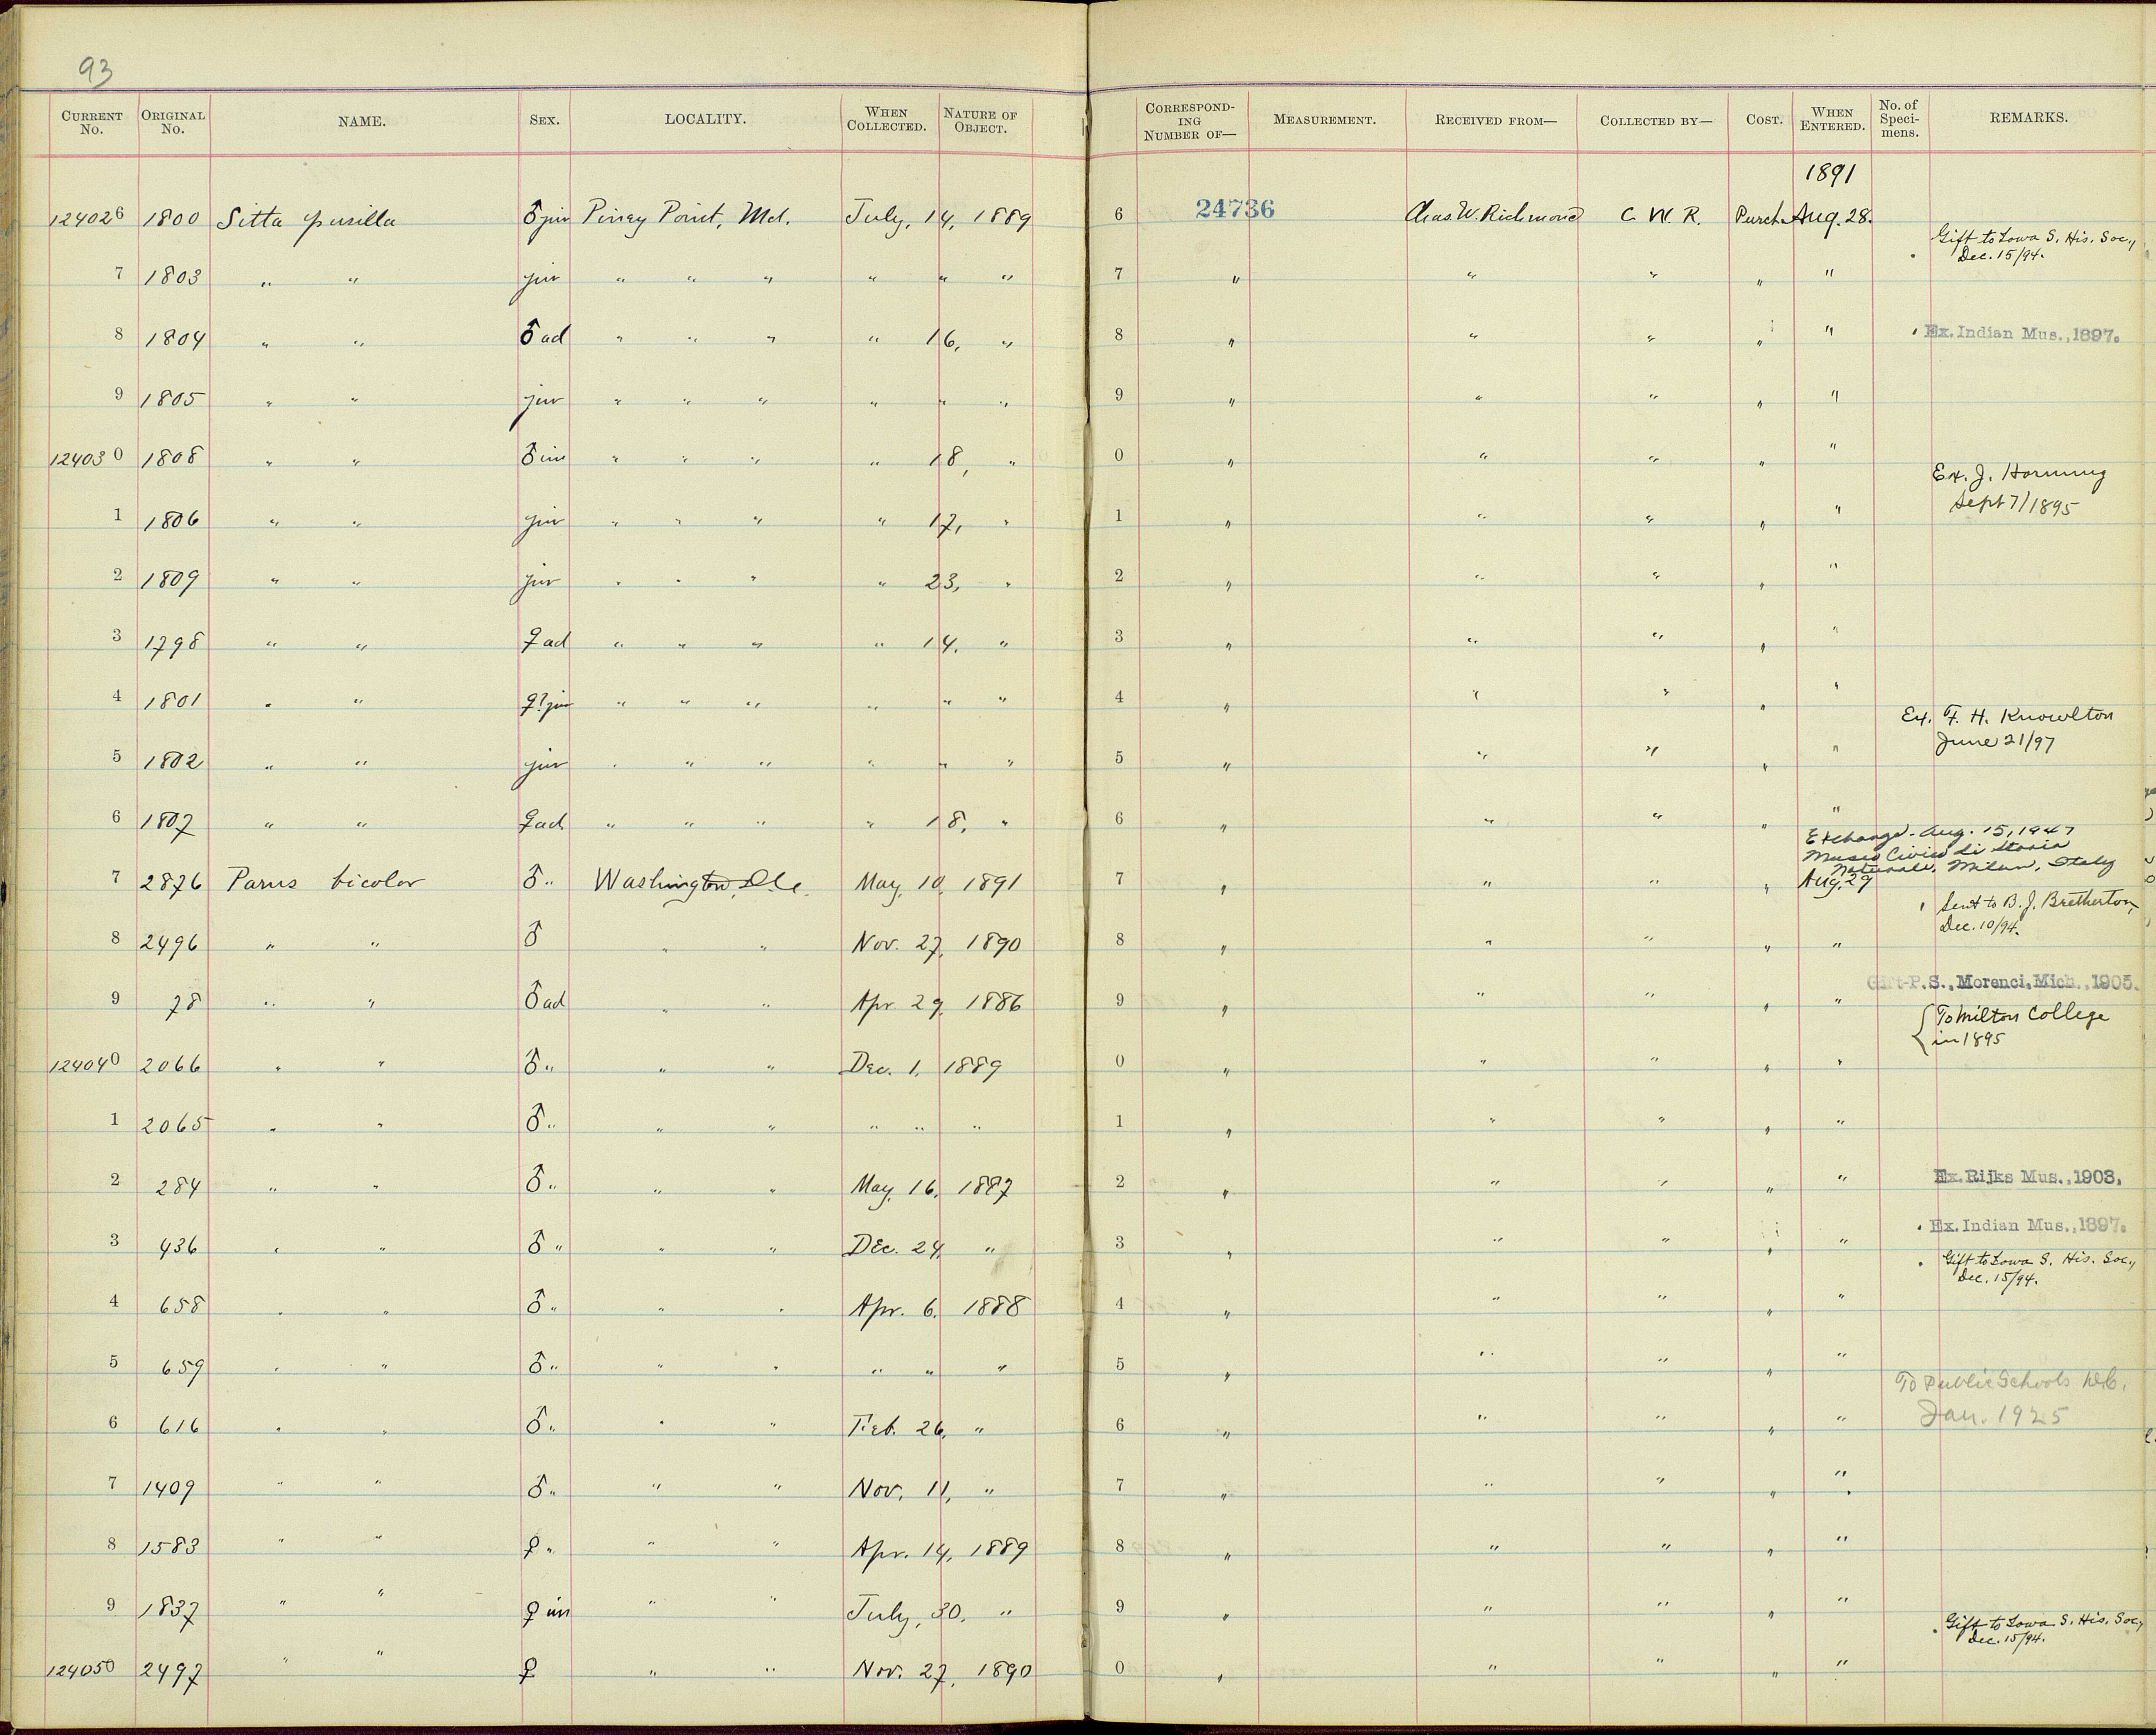 93
CURRENT No. ORIGINAL No. NAME. SEX. LOCALITY. WHEN COLLECTED. NATURE OF OBJECT. CORRESPONDING NUMBER OF— MEASUREMENT. RECEIVED FROM— COLLECTED BY— COST. WHEN ENTERED. No. of Specimens. REMARKS.
1891
124026 1800 Sitta pusilla ♂ juv Piney Point, Md. July, 14, 1889 6 24736 Chas. W. Richmond C. W. R. Purch. Aug. 28.
Gift to Iowa S. His. Soc.,
Dec. 15/94.
7 1803 " " juv " " " " " " 7 " " " " "
8 1804 " " ♂ ad " " " " 16, " 8 " " " " " Ex. Indian Mus., 1897.
9 1805 " " juv " " " " " " 9 " " " " "
124030 1808 " " ♂ im " " " " 18, " 0 " " " " "
Ex. J. Hornung
Sept 7/1895
1 1806 " " juv " " " " 17, " 1 " " " " "
2 1809 " " juv " " " " 23, " 2 " " " " "
3 1798 " " ♀ ad " " " " 14, " 3 " " " " "
4 1801 " " ♀? juv " " " " " " 4 " " " " "
Ex. F. H. Knowlton
June 21/97
5 1802 " " juv " " " " " " 5 " " " " "
6 1807 " " ♀ ad " " " " 18, " 6 " " " " "
Exchange - Aug. 15, 1947
Museo Civico di Storia
Naturale, Milan, Italy
7 2876 Parus bicolor ♂ " Washington, D.C. May, 10, 1891 7 " " " " Aug. 29
Sent to B. J. Bretherton,
Dec. 10/94.
8 2496 " " ♂ " " Nov. 27, 1890 8 " " " " "
Gift-P.S., Morenci, Mich., 1905.
9 78 " " ♂ ad " " Apr. 29, 1886 9 " " " " "
To Milton College
in 1895
124040 2066 " " ♂ " " " Dec. 1, 1889 0 " " " " "
1 2065 " " ♂ " " " " " " 1 " " " " "
2 284 " " ♂ " " " May, 16, 1887 2 " " " " " Ex. Rijks Mus., 1903.
3 436 " " ♂ " " " Dec. 24, " 3 " " " " " Ex. Indian Mus., 1897.
Gift to Iowa S. His. Soc.,
Dec. 15/94.
4 658 " " ♂ " " " Apr. 6, 1888 4 " " " " "
5 659 " " ♂ " " " " " " 5 " " " " "
To Public Schools D.C.,
Jan. 1925
6 616 " " ♂ " " " Feb. 26, " 6 " " " " "
7 1409 " " ♂ " " " Nov. 11, " 7 " " " " "
8 1583 " " ♀ " " " Apr. 14, 1889 8 " " " " "
9 1837 " " ♀ im " " July, 30, " 9 " " " " "
Gift to Iowa S. His. Soc.,
Dec. 15/94.
124050 2497 " " ♀ " " Nov. 27, 1890 0 " " " " "